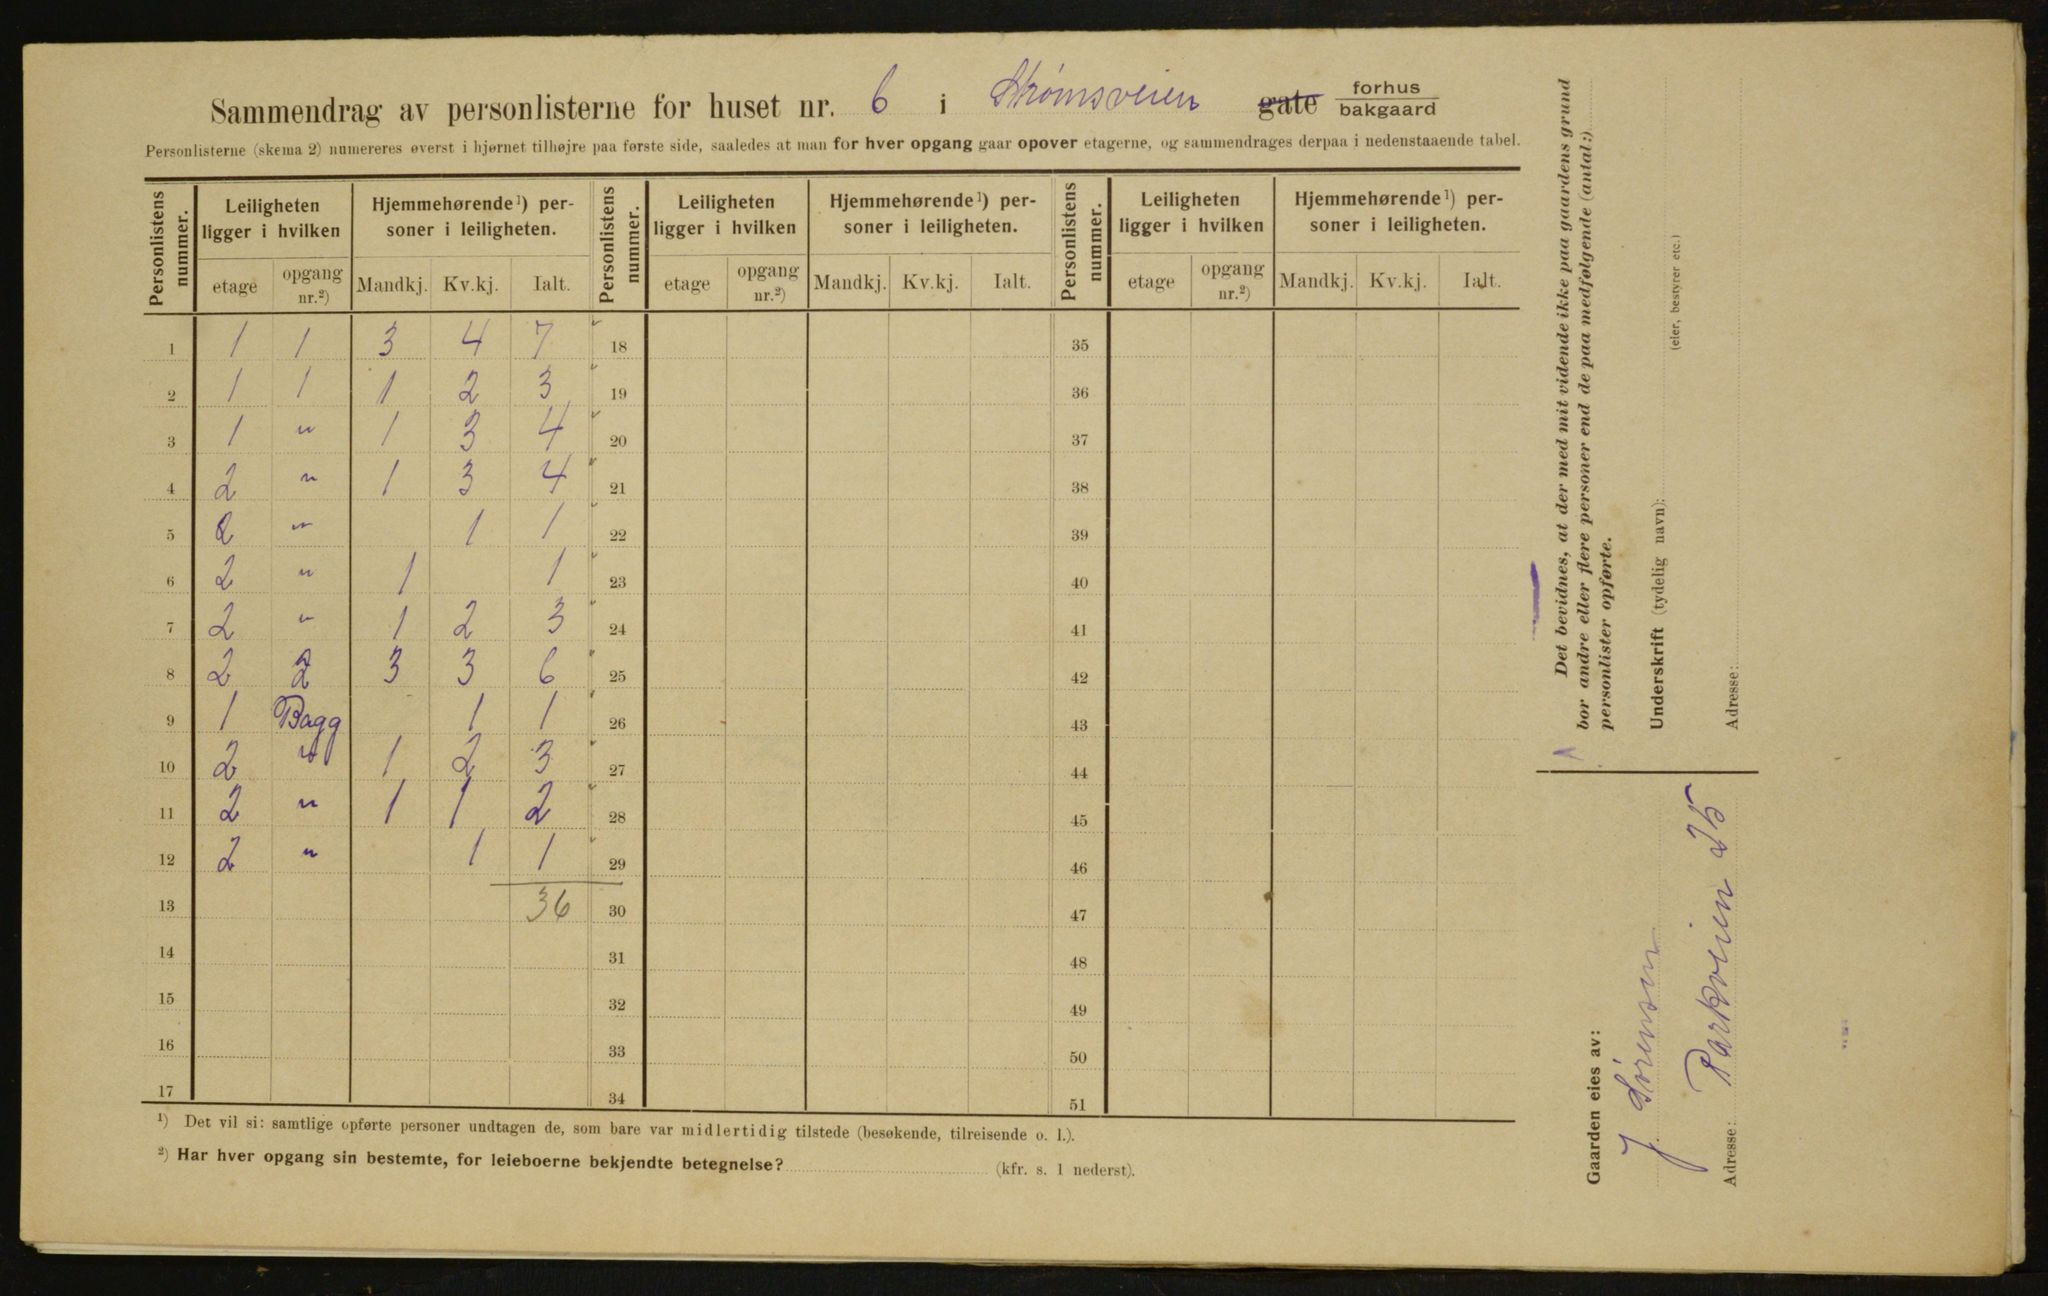 Sammendrag av personlisterne for huset nr. 6 i Strømsveien gate forhus bakgaard
Personlisterne (skema 2) numereres øverst i hjørnet tilhøjre paa første side, saaledes at man for hver opgang gaar opover etagerne, og sammendrages derpaa i nedenstaaende tabel.
Personlistens nummer. Leiligheten ligger i hvilken Hjemmehørende¹) personer i leiligheten. Personlistens nummer. Leiligheten ligger i hvilken Hjemmehørende¹) personer i leiligheten. Personlistens nummer. Leiligheten ligger i hvilken Hjemmehørende¹) personer i leiligheten.
etage opgang nr.²) Mandkj. Kv.kj. Ialt. etage opgang nr.²) Mandkj. Kv.kj. Ialt. etage opgang nr.²) Mandkj. Kv.kj. Ialt.
1 1 1 3 4 7 18 35
2 1 1 1 2 3 19 36
3 1 " 1 3 4 20 37
4 2 " 1 3 4 21 38
5 2 " 1 1 22 39
6 2 " 1 1 23 40
7 2 " 1 2 3 24 41
8 2 2 3 3 6 25 42
9 1 Bagg 1 1 26 43
10 2 " 1 2 3 27 44
11 2 " 1 1 2 28 45
12 2 " 1 1 29 46
13 36 30 47
14 31 48
15 32 49
16 33 50
17 34 51
¹) Det vil si: samtlige opførte personer undtagen de, som bare var midlertidig tilstede (besøkende, tilreisende o. l.).
²) Har hver opgang sin bestemte, for leieboerne bekjendte betegnelse? (kfr. s. 1 nederst).
Det bevidnes, at der med mit vidende ikke paa gaardens grund
bor andre eller flere personer end de paa medfølgende (antal:)
personlister opførte.
Underskrift (tydelig navn):
(eier, bestyrer etc.)
Adresse:
Gaarden eies av:
J. Sørensen
Adresse: Parkveien 25